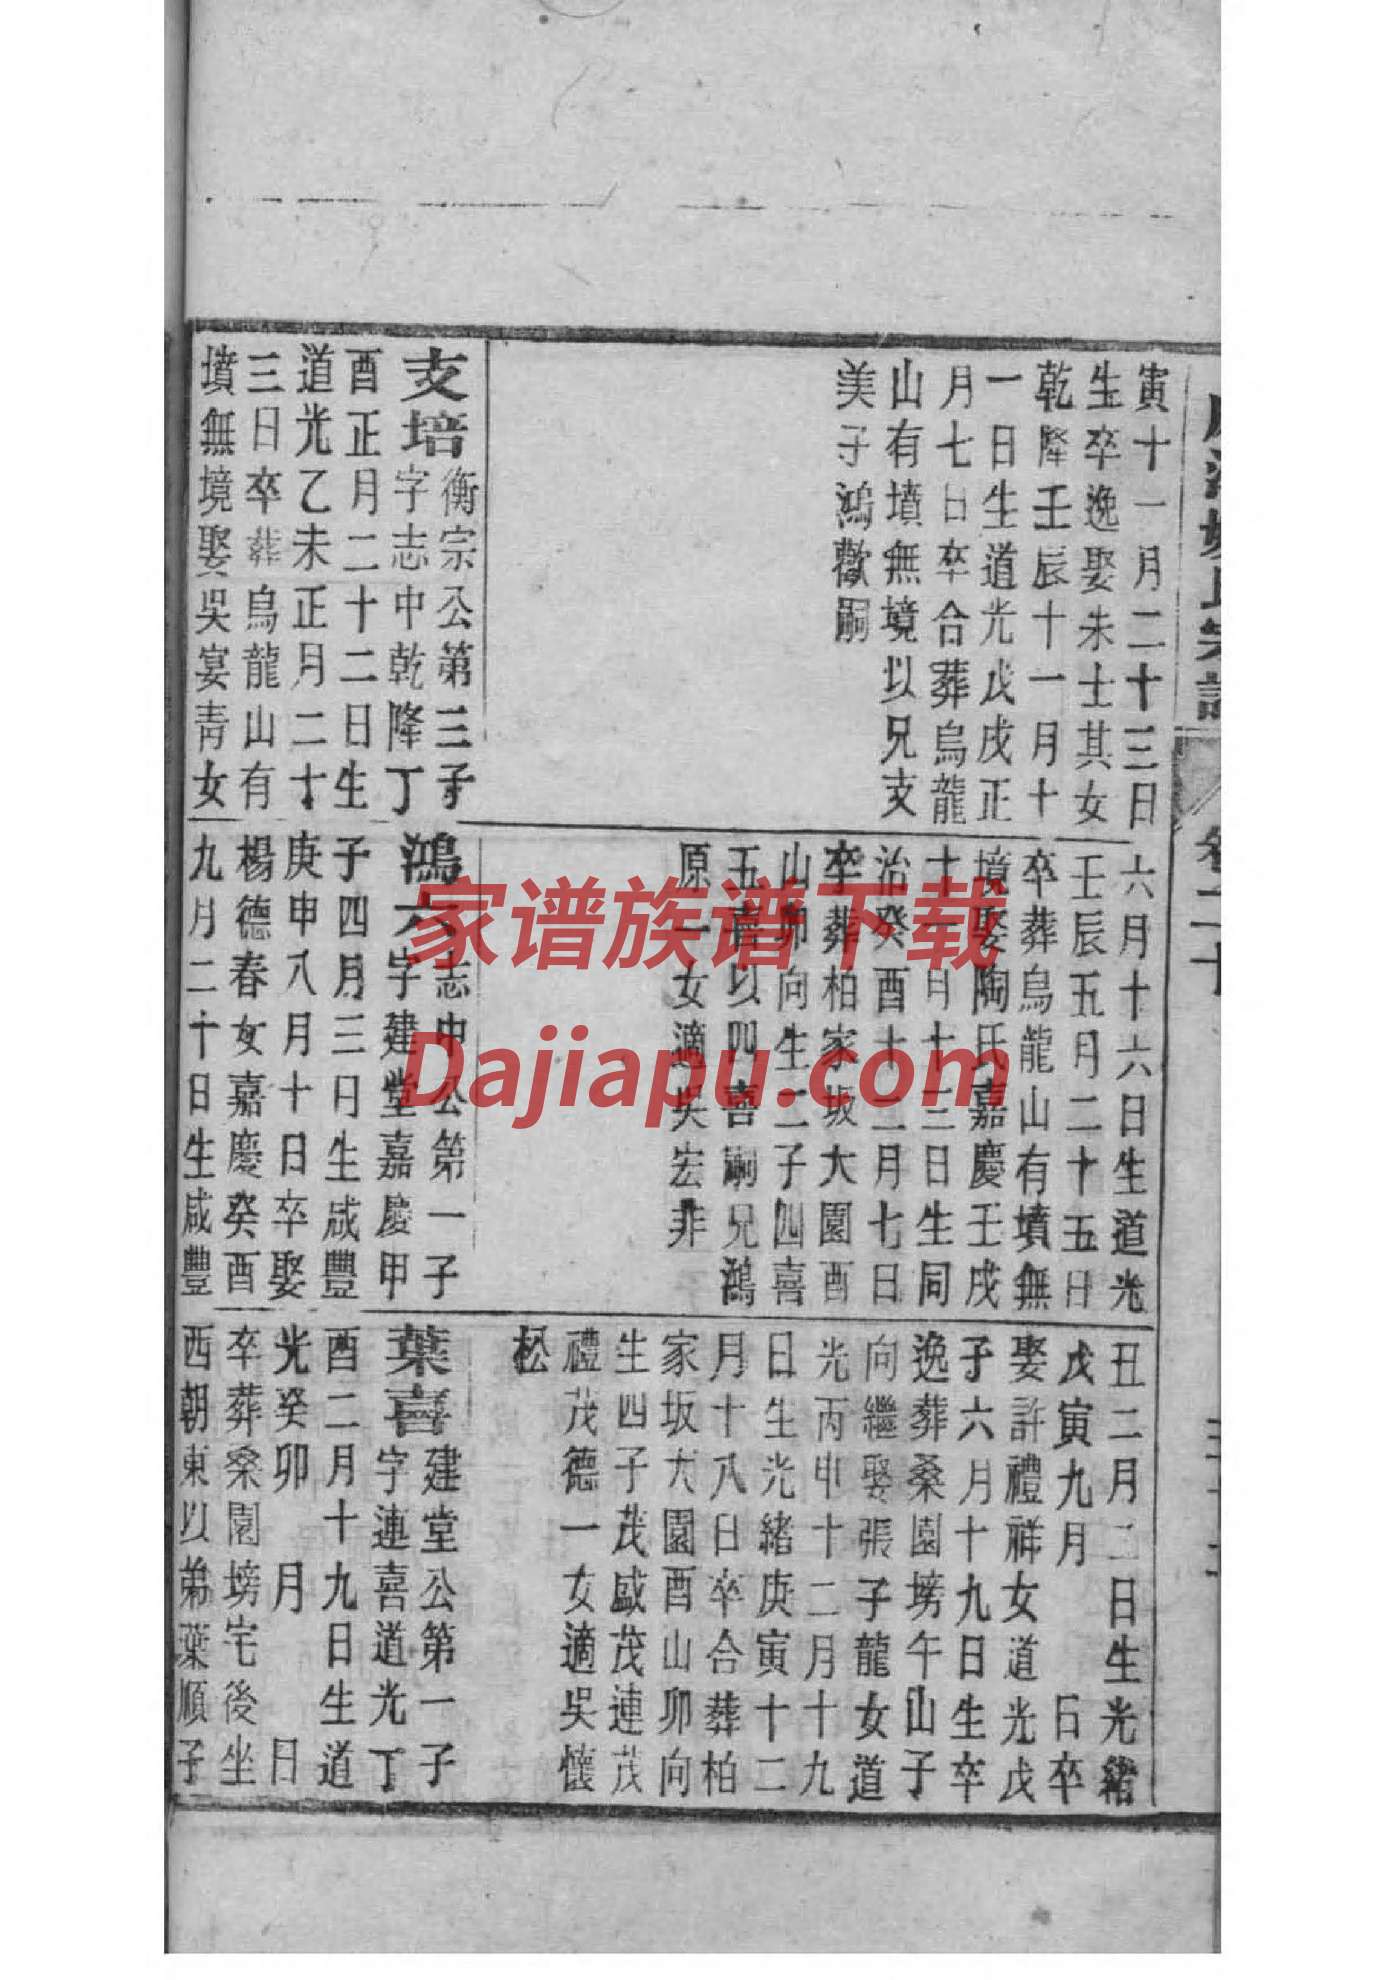 寅十一月二十三日
生卒逸娶朱士其女
乾隆壬辰十一月十
一日生道光戊戌正
月七日卒合葬烏龍
山有墳無境以兄支
美子鴻歡嗣
支培
衡宗公第三子
字志中乾降丁
酉正月二十二日生
道光乙未正月二十
三日卒葬烏龍山有
墳無境娶吳宴青女
六月十六日生道光
壬辰五月二十五日
卒葬烏龍山有墳無
境娶陶氏嘉慶壬戌
十月十三日生同
治癸酉十二月七日
卒葬柏家坂大園酉
山卯向生二子四喜
五喜以四喜嗣兄鴻
原一女適吳宏非
鴻六
志中公第一子
字建堂嘉慶甲
子四月三日生咸豐
庚申八月十日卒娶
楊德春女嘉慶癸酉
九月二十日生咸豐
丑二月二日生光緒
戊寅九月 日卒
娶許禮祥女道光戊
子六月十九日生卒
逸葬桑園塝午山子
向繼娶張子龍女道
光丙申十二月十九
日生光緒庚寅十二
月十八日卒合葬柏
家坂大園酉山卯向
生四子茂盛茂連茂
禮茂德一女適吳懷
松
葉喜
建堂公第一子
字連喜道光丁
酉二月十九日生道
光癸卯 月 日
卒葬桑園塝宅後坐
西朝東以弟葉順子
家谱族谱下载
Dajiapu.com